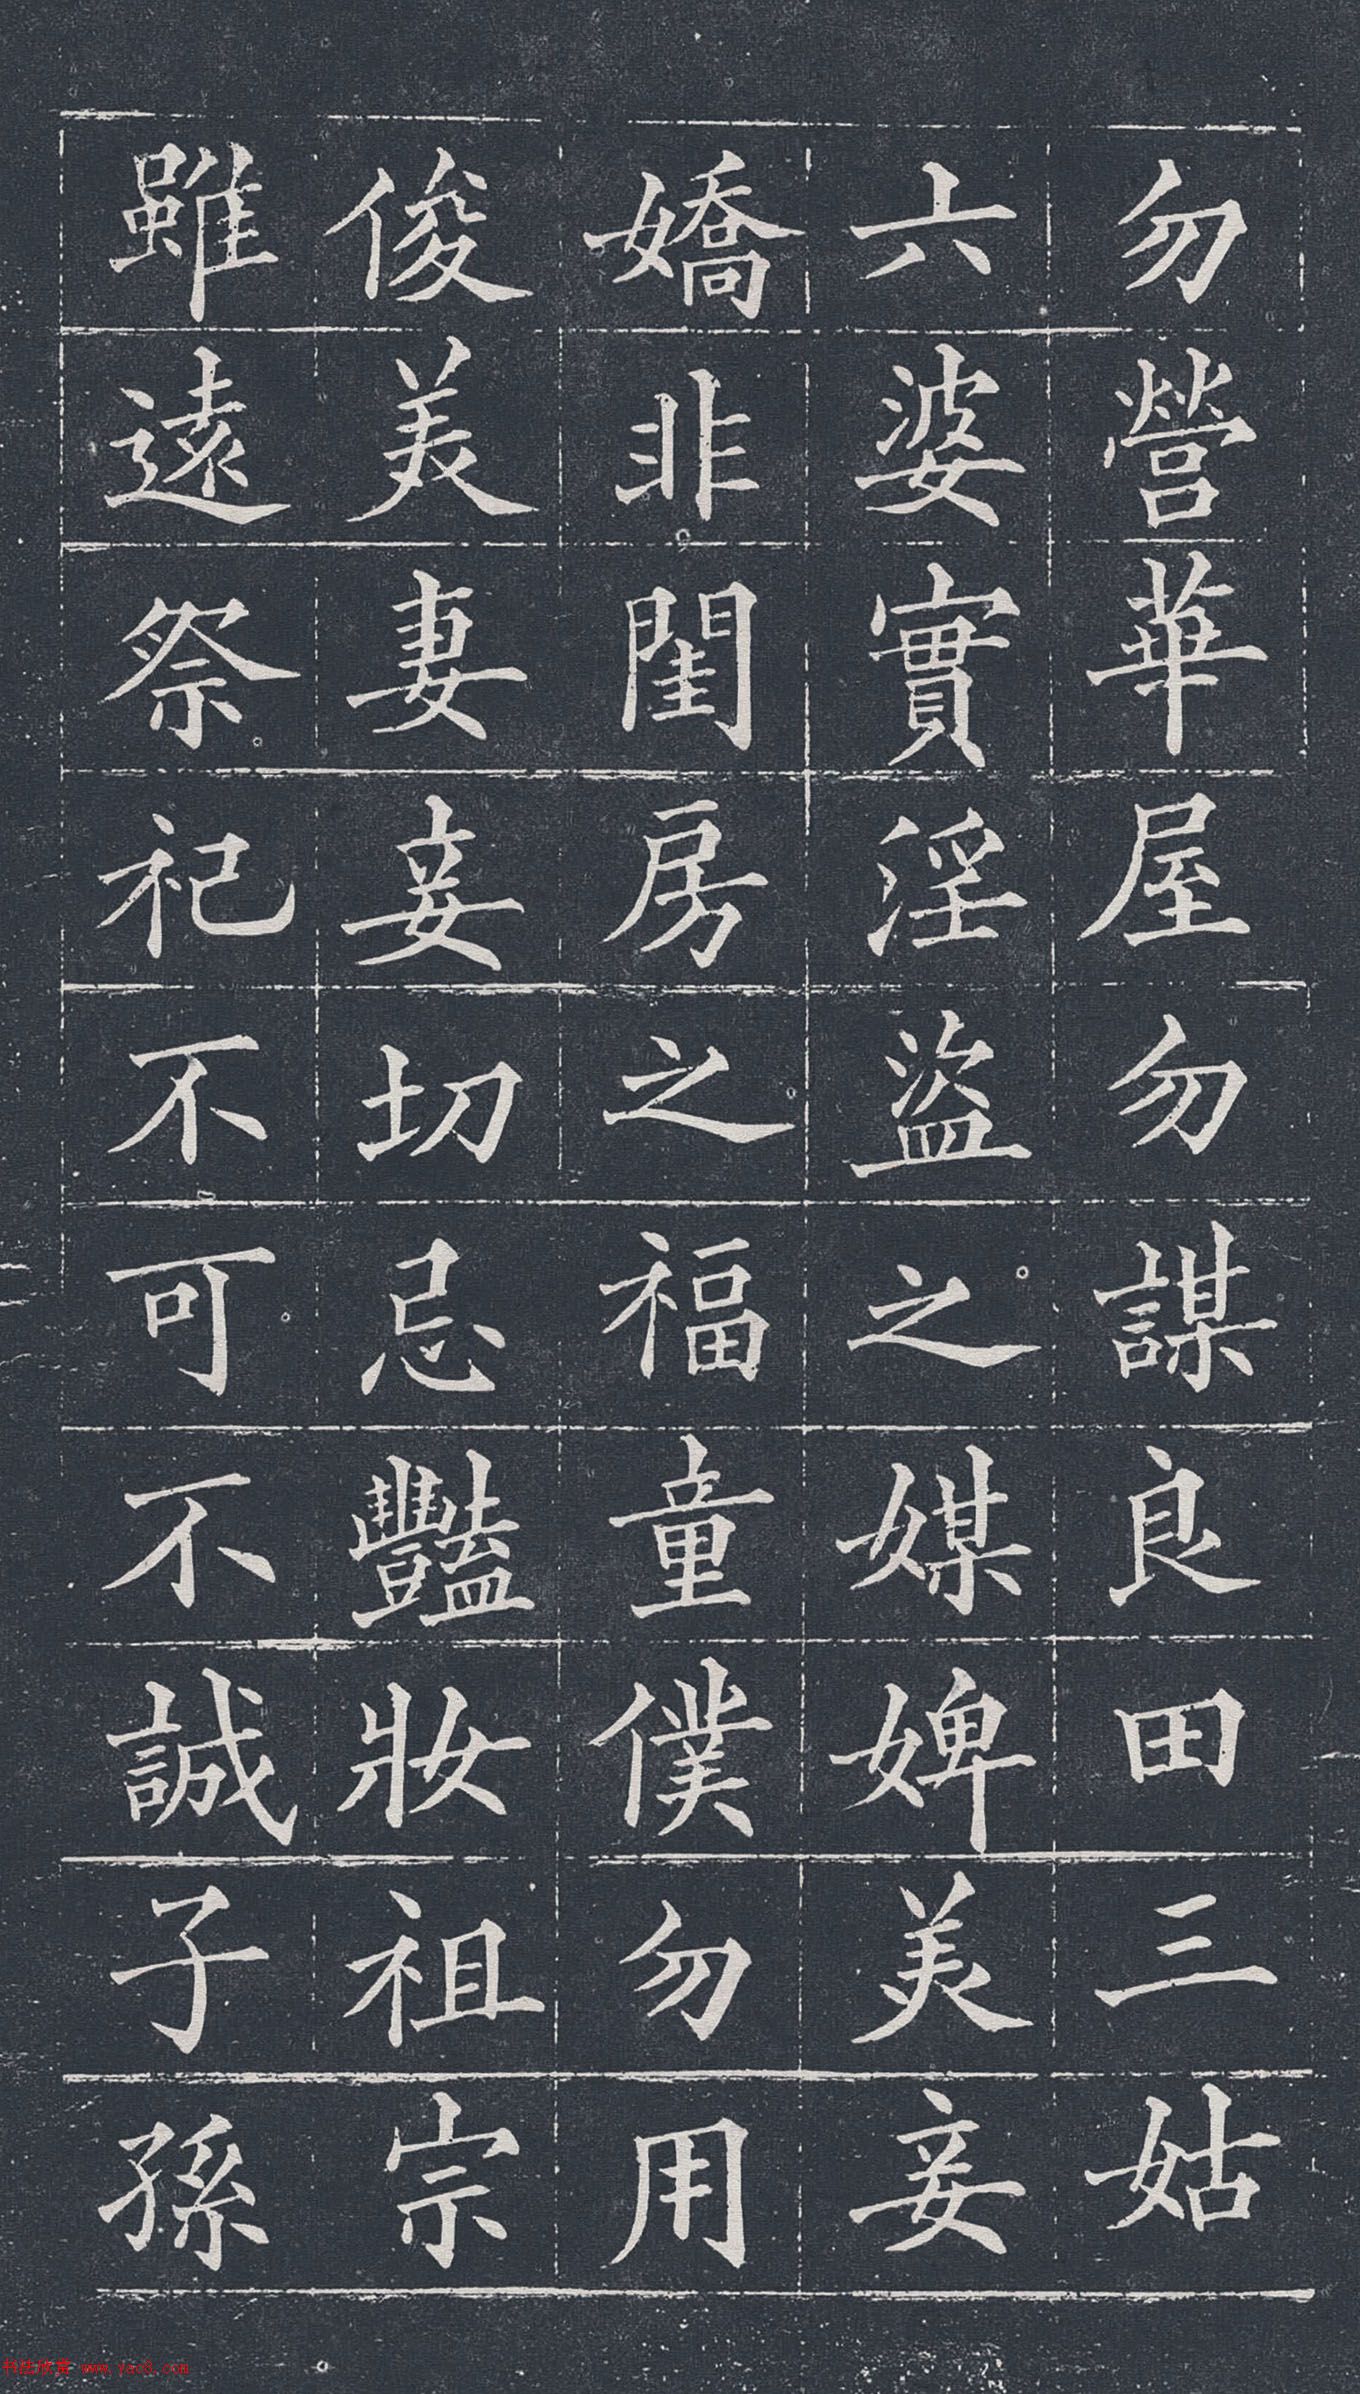 勿營華屋勿謀良田三姑
六婆實淫盜之媒婢美妾
嬌非閨房之福童僕勿用
俊美妻妾切忌豔妝祖宗
雖遠祭祀不可不誠子孫
www.yac8.com